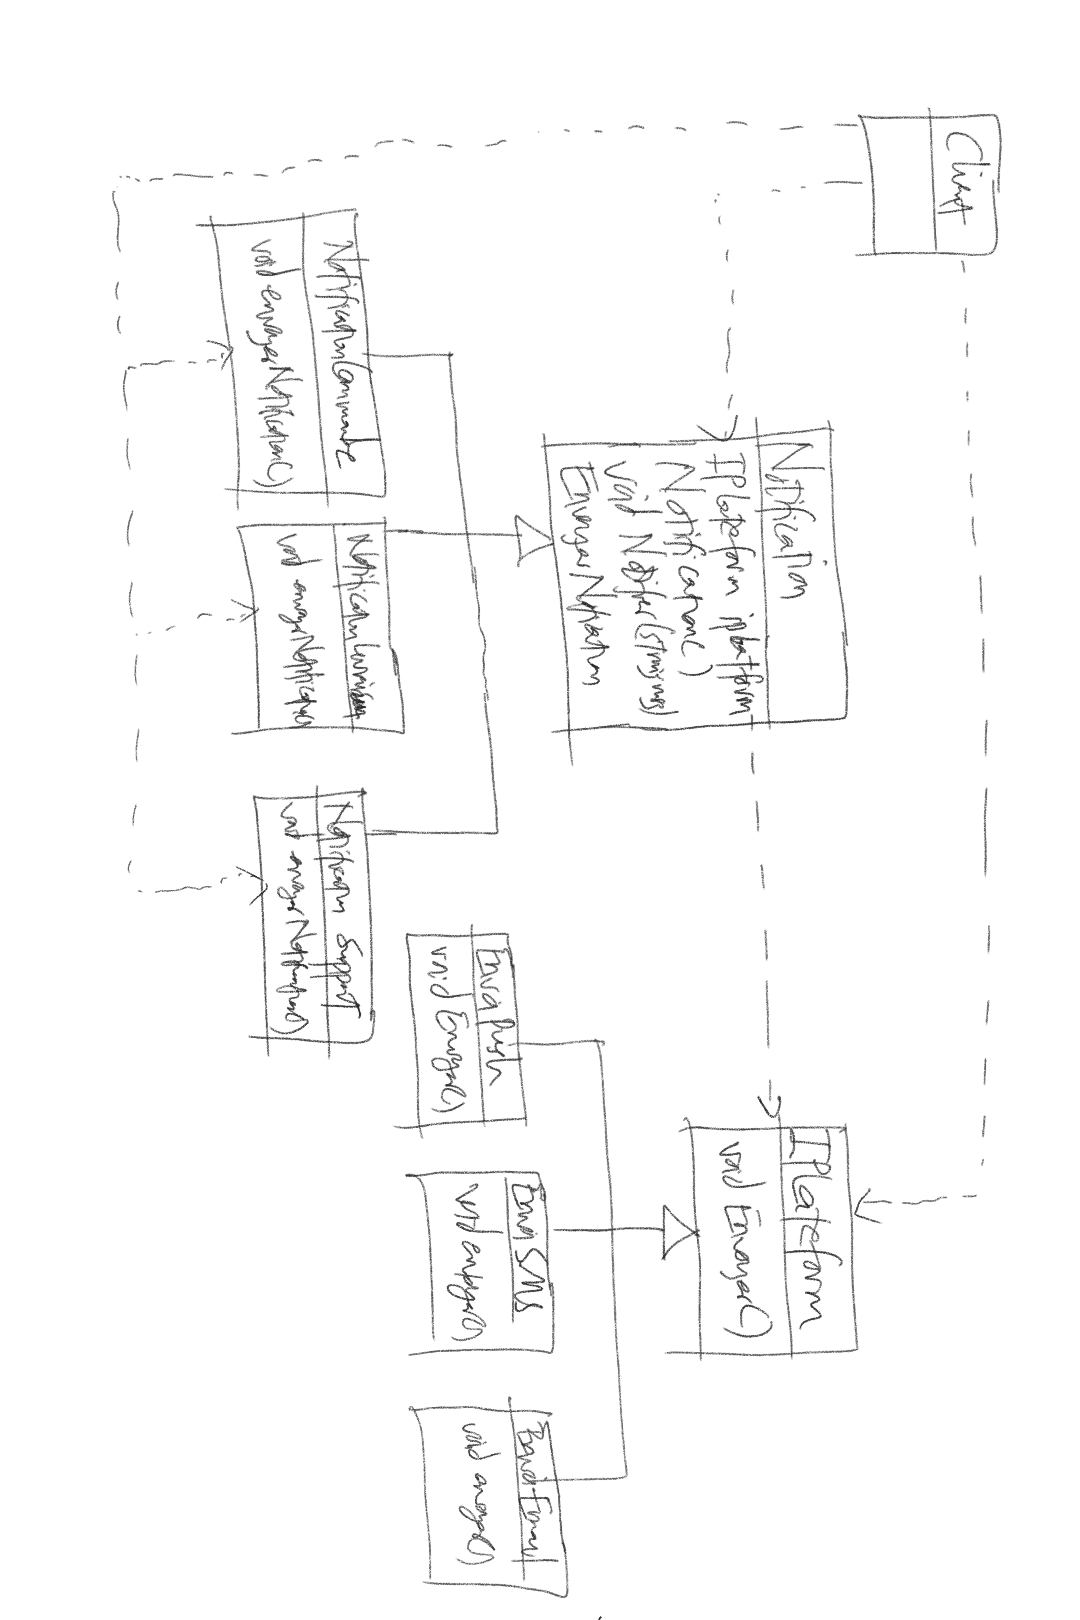 Client
Notification
IPlateform iplatform
Notification()
void Notifier(string msg)
EnvoyerNotification
IPlateform
void Envoyer()
Envoi Push
void Envoyer()
Envoi SMS
void envoyer()
Envoi Email
void envoyer()
NotificationCommande
void envoyerNotification()
NotificationLivraison
void envoyerNotification()
Notification Support
void envoyerNotification()